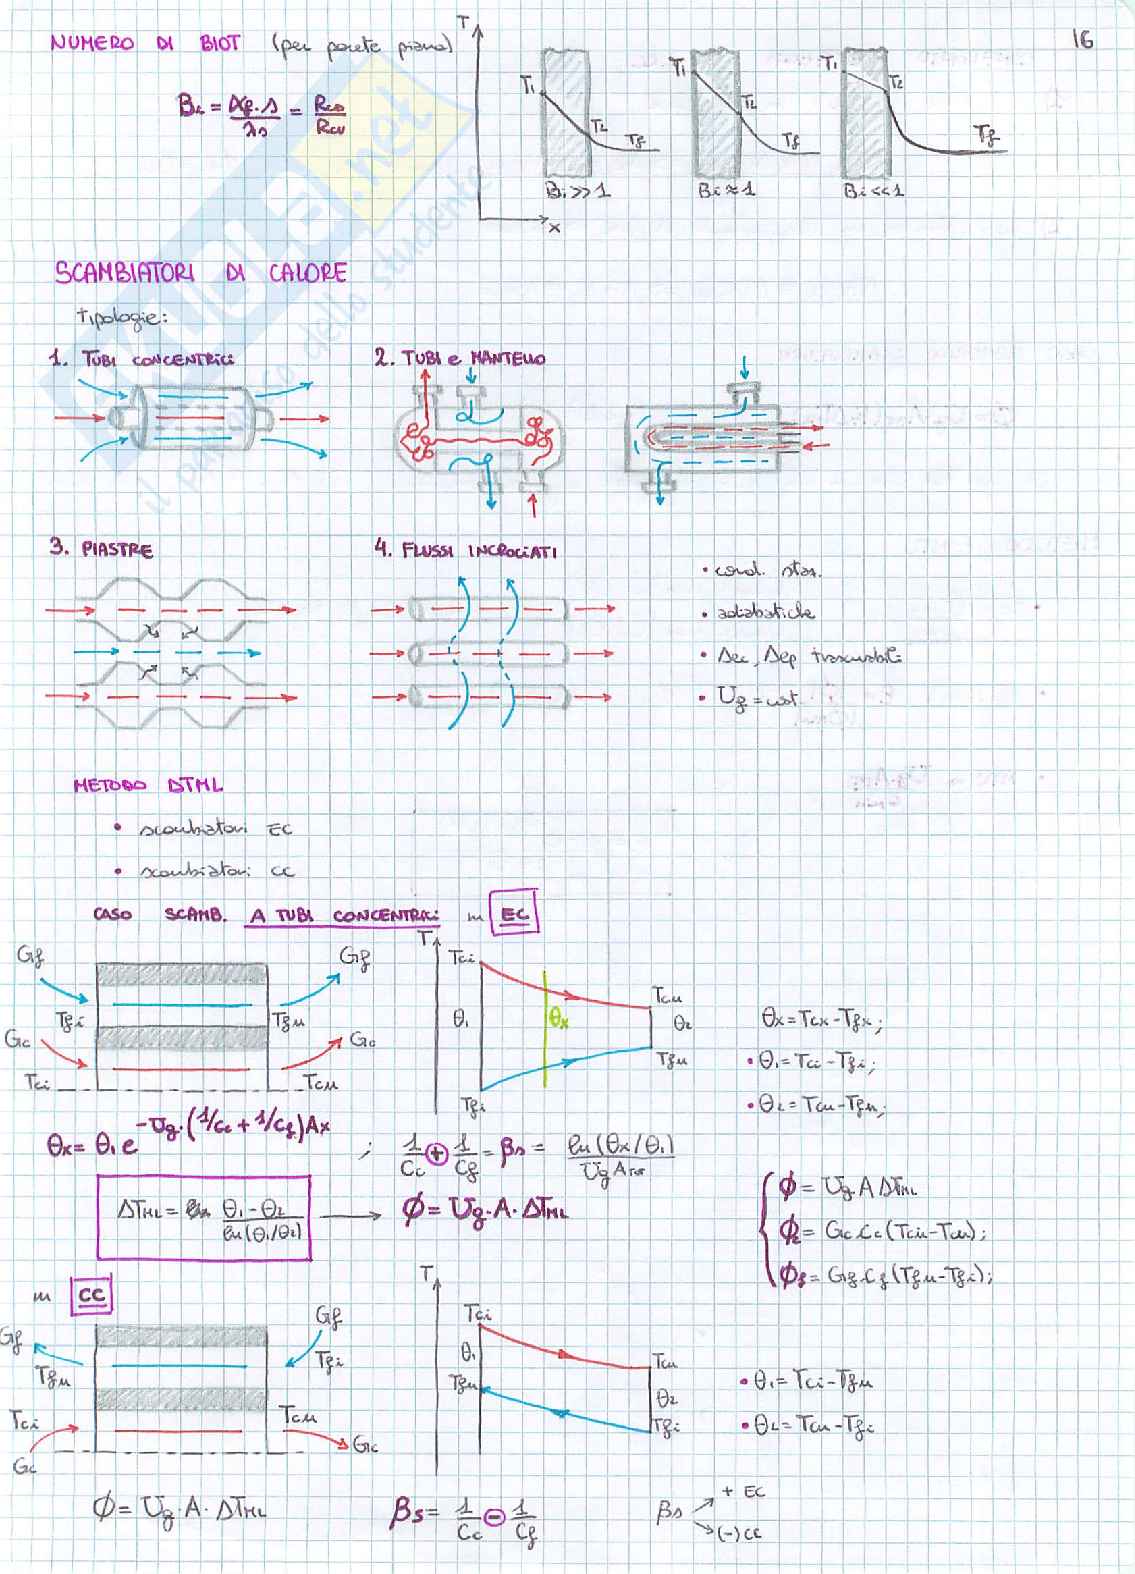 16
NUMERO DI BIOT (per parete piana)
Bi = αf·s/λs = Rcd/Rcv
T
x
T1 T2 Tf
Bi>>1
T1 T2 Tf
Bi≈1
T1 T2 Tf
Bi<<1
SCAMBIATORI DI CALORE
tipologie:
1. TUBI CONCENTRICI
2. TUBI e MANTELLO
3. PIASTRE
4. FLUSSI INCROCIATI
• cond. staz.
• adiabatiche
• Δec, Δep trascurabili
• Ug = cost
METODO DTML
• scambiatori EC
• scambiatori CC
CASO SCAMB. A TUBI CONCENTRICI in EC
Gf Gf
Tfi Tfu
Gc Gc
Tci Tcu
T
Tci
Tcu
θ1 θx θ2
Tfu
Tfi
θx = Tcx - Tfx;
• θ1 = Tci - Tfi;
• θ2 = Tcu - Tfu;
θx = θ1 e^-Ug·(1/Cc + 1/Cf)Ax ; 1/Cc + 1/Cf = βs = ln(θx/θ1)/Ug
ΔTML = θ1 - θ2/ln(θ1/θ2) → ϕ = Ug·A·ΔTML
ϕ = Ug·A ΔTML
= Gc·Cc(Tci - Tcu);
ϕf = Gf·Cf(Tfu - Tfi);
in CC
Gf Gf
Tfu Tfi
Tci Tcu
Gc Gc
T
Tci
θ1 Tcu
Tfu θ2
Tfi
• θ1 = Tci - Tfu
• θ2 = Tcu - Tfi
ϕ = Ug·A·ΔTML
βs = 1/Cc - 1/Cf
βs + EC
(-) CC
il dello studente
.net